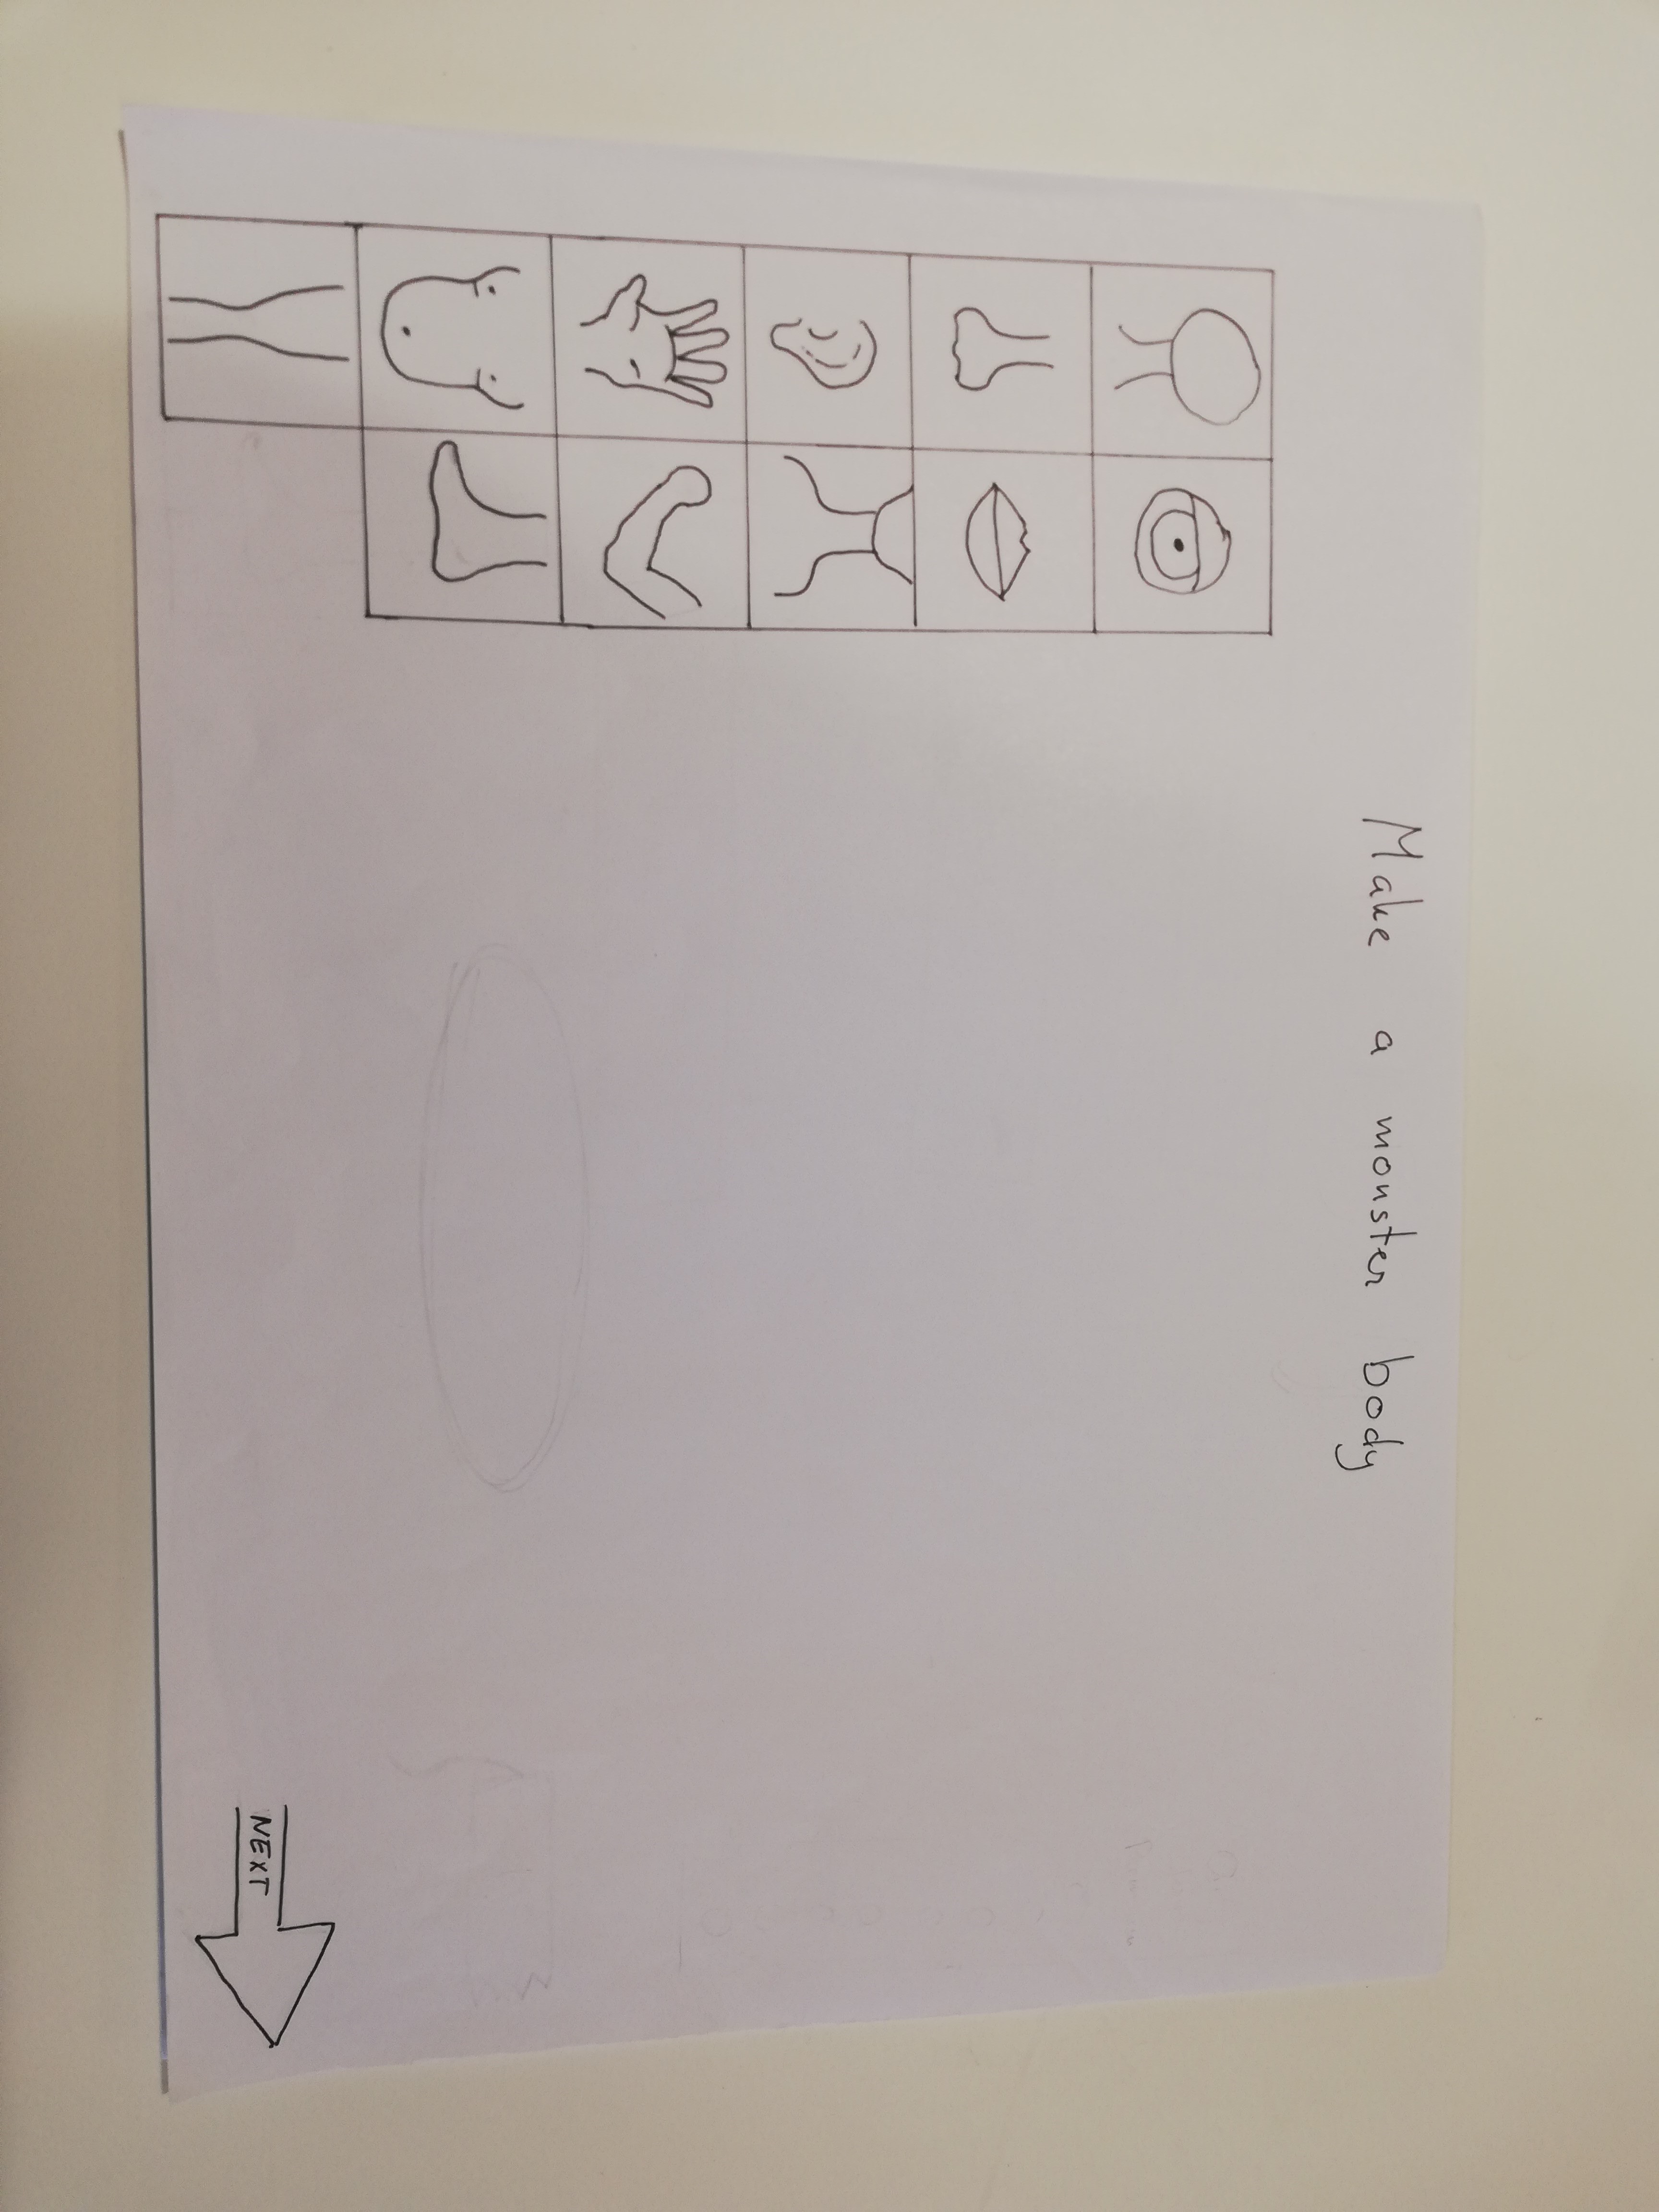 Make a monster body
NEXT